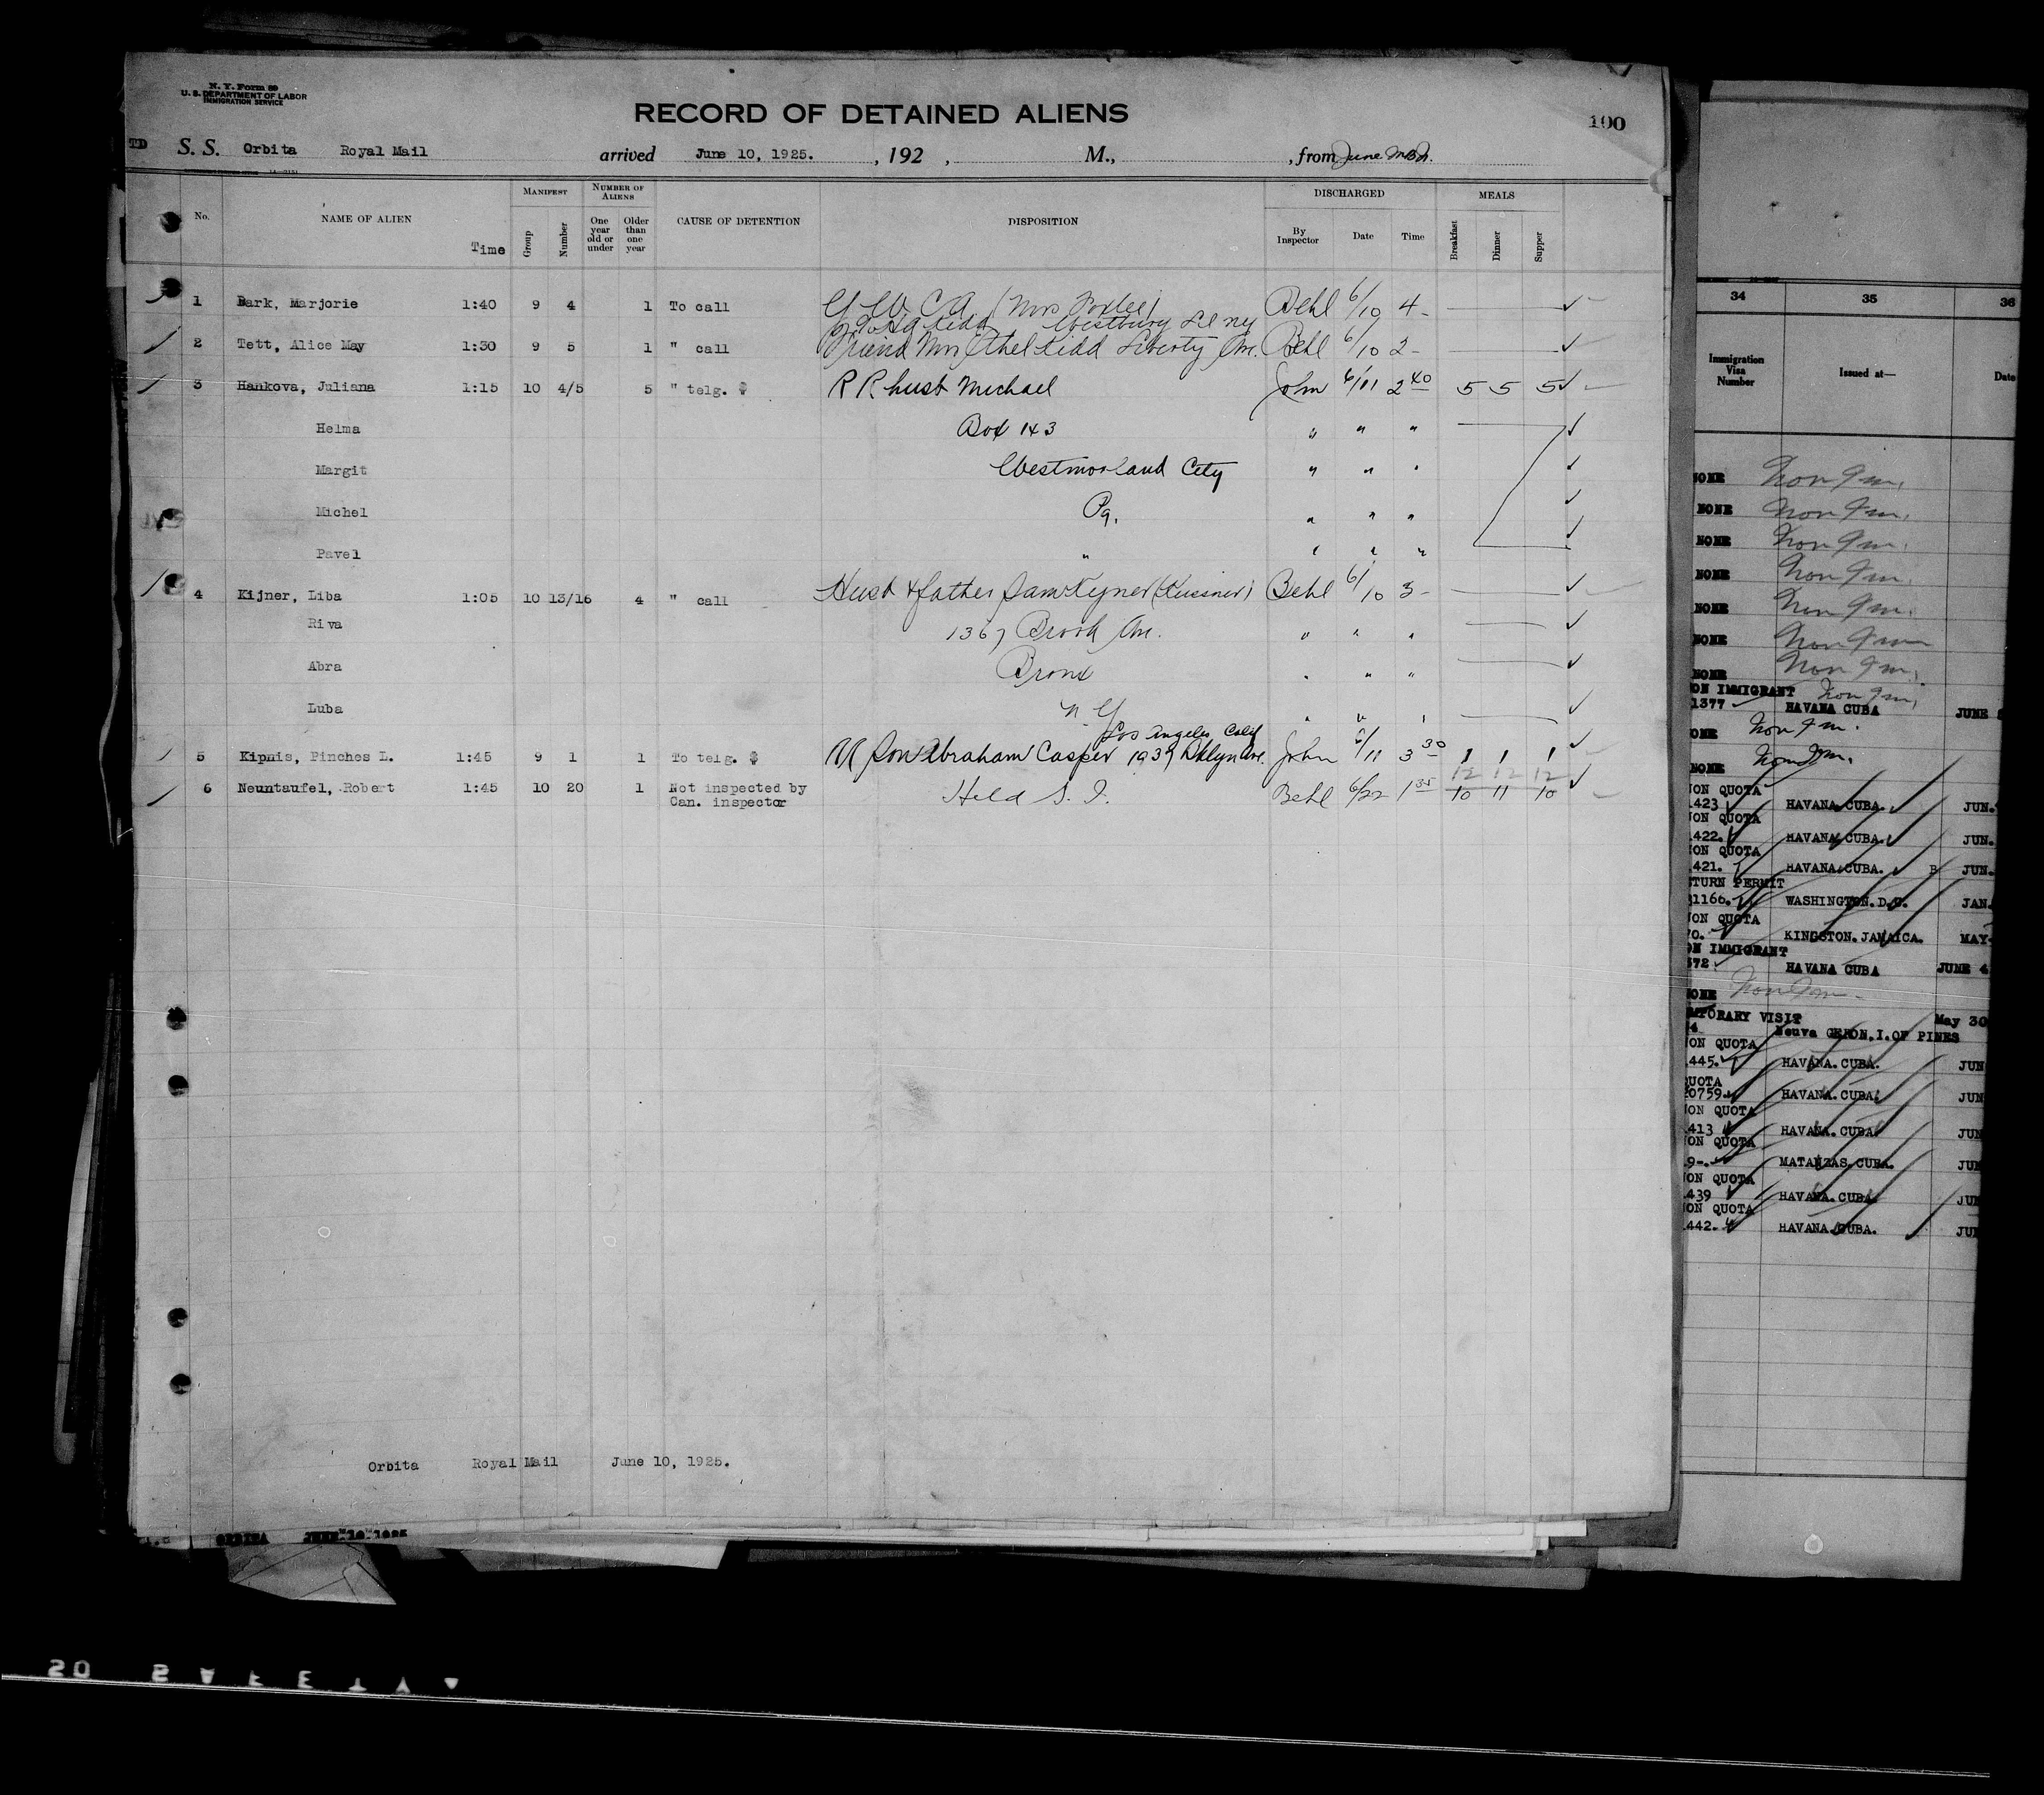 N. Y. Form 89
U. S. DEPARTMENT OF LABOR
IMMIGRATION SERVICE
RECORD OF DETAINED ALIENS
100
TD S. S. Orbita Royal Mail arrived June 10, 1925. , 192 , M., , from
No. NAME OF ALIEN Time MANIFEST Group Number NUMBER OF ALIENS One year old or under Older than one year CAUSE OF DETENTION DISPOSITION DISCHARGED By Inspector Date Time MEALS Breakfast Dinner Supper
1 Bark, Marjorie 1:40 9 4 1 To call Y W C A (Mrs Foxlee) Behl 6/10 4-
Westbury
2 Tett, Alice May 1:30 9 5 1 " call Friend Mrs Ethel Kidd Liberty Ave. Behl 6/10 2-
3 Hankova, Juliana 1:15 10 4/5 5 " telg. $ R R husb Michael John 6/11 2 40 5 5 5
Helma Box 143 " " "
Margit Westmorland City " " "
Michel Pa. " " "
Pavel " " " "
4 Kijner, Liba 1:05 10 13/16 4 " call Husb & father Sam Kyner (Kussner) Behl 6/10 3-
Riva 1367 Brook Ave. " " "
Abra Bronx " " "
Luba N.Y. " " "
Los Angeles Calif
5 Kipnis, Pinches L. 1:45 9 1 1 To telg. $ Son Abraham Casper 1939 Bklyn Ave. John 6/11 3 30 1 1 1
12 12 12
6 Neuntaufel, Robert 1:45 10 20 1 Not inspected by Held S. I. Behl 6/22 1 35 10 11 10
Can. inspector
Orbita Royal Mail June 10, 1925.
ORBITA JUNE 10 1925
34 35 36
Immigration Visa Number Issued at— Date
NONE Non Im.
NONE Non Im.
NONE Non Im.
NONE Non Im.
NONE Non Im.
NONE Non Im
NONE Non Im.
ON IMMIGRANT Non Im.
1377 HAVANA CUBA JUNE
ONE Non Im.
NONE Non Im.
NON QUOTA
1423 HAVANA.CUBA. JUN.
NON QUOTA
1422. HAVANA.CUBA. JUN.
NON QUOTA
1421. HAVANA.CUBA. B JUN.
ETURN PERMIT
31166. WASHINGTON.D.C. JAN.
NON QUOTA
70. KINGSTON.JAMAICA. MAY
ON IMMIGRANT
372 HAVANA CUBA JUNE 4
NONE Non Im.
MPORARY VISIT May 30
4 Neuva GERON.I.OF PINES
NON QUOTA
1445. HAVANA.CUBA. JUN
QUOTA
20759. HAVANA.CUBA. JUN
NON QUOTA
1413 HAVANA.CUBA JUN
NON QUOTA
19-. MATANZAS.CUBA. JUN
NON QUOTA
1439 HAVANA.CUBA JUN
NON QUOTA
1442. HAVANA.CUBA. JUN
SAFETY